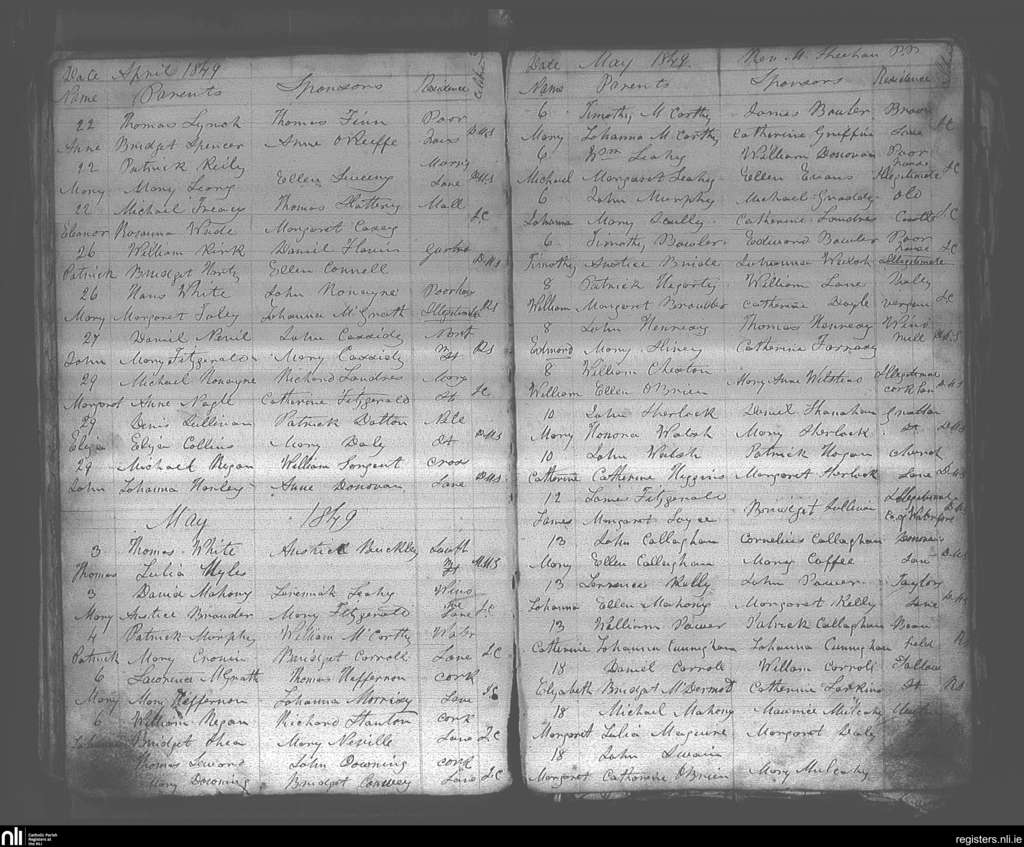 Date April 1849
Name Parents Sponsors Residence
22 Thomas Lynch Thomas Finn Poor
Anne Bridget Spencer Anne O'Keeffe D.M.S
22 Patrick Reily
Mary Mary Leong Ellen Sweeny Lane D.M.S
22 Michael Treacy Thomas Slattery Mall
Eleanor Rosanna Wade Margaret Casey J.C
26 William Kirk Daniel Flavin
Patrick Bridget Ellen Connell D.M.S
26 Hans White John Ronayne Poorhouse
Mary Margaret Foley Johanna McGrath Illegitimate R.S
27 Daniel Nevil John Cassidy
John Mary Fitzgerald Mary Cassidy St R.S
29 Michael Ronayne Richard Landres
Margaret Anne Nagle Catherine Fitzgerald St J.C
29 Denis Sullivan Patrick Dalton
Eliza Eliza Collins Mary Daly St D.M.S
29 Michael Regan William Sargent Cross
John Johanna Hanley Anne Donovan Lane D.M.S
May 1849
3 Thomas White Anstice Buckley
Thomas Julia Myles St
3 David Mahony Jeremiah Leahy
Mary Anstice Browder Mary Fitzgerald Lane J.C
4 Patrick Murphy William McCarthy Water
Patrick Mary Cronin Bridget Carroll Lane J.C
6 Lawrence McGrath Thomas Heffernon Cork
Mary Mary Heffernon Johanna Morrisy Lane J.C
6 William Regan Richard Stanton Cork
Johanna Bridget Shea Mary Neville Lane J.C
Thomas John Downing Cork
Mary Downing Bridget Lane J.C
Date May 1849. Rev. M. Sheehan P.P.
Name Parents Sponsors Residence
6 Timothy McCarthy James Bowler Brown
Mary Johanna McCarthy Catherine Griffin Lane J.C
6 Wm Leahy William Donovan Poor house
Michael Margaret Leahy Ellen Evans Illegitimate J.C
6 John Murphy Michael Old
Johanna Mary Scully Catherine Landres Castle J.C
6 Timothy Bowler Edward Bowler Poor house
Timothy Anstice Bride Johanna Walsh Illegitimate J.C
8 Patrick Hegorty William Lane
William Margaret Browder Catherine Doyle J.C
8 John Hennesy Thomas Hennesy Wind
Edmond Mary Hiney Catherine Mill D.M.S
8 William Cheston Illegitimate
William Ellen O'Brien Mary Anne D.M.S
10 John Sherlock Daniel Shanahan Grattan
Mary Honora Walsh Mary Sherlock St. D.M.S
10 John Walsh Patrick Hogan Church
Catherine Catherine Higgins Margaret Lane D.M.S
12 James Fitzgerald Illegitimate
James Margaret Joyce Bridget Sullivan Co. of Waterford D.M.S
13 John Callaghan Cornelius Callaghan
Mary Ellen Callaghan Mary Coffee D.M.S
13 Lawrence Kelly John Power Taylor
Johanna Ellen Mahony Margaret Kelly Lane D.M.S
13 William Power Patrick Callaghan Bean
Catherine Johanna Cunningham Johanna Cunningham field R.S
18 Daniel Carroll William Carroll Tallow
Elizabeth Bridget McDermot Catherine Larkins St R.S
18 Michael Mahony Maurice Mulcahy
Margaret Julia Maguire Margaret Daly
18 John Swain
Margaret Catherine O'Brien Mary Mulcahy
nli Catholic Parish Registers at the NLI
registers.nli.ie